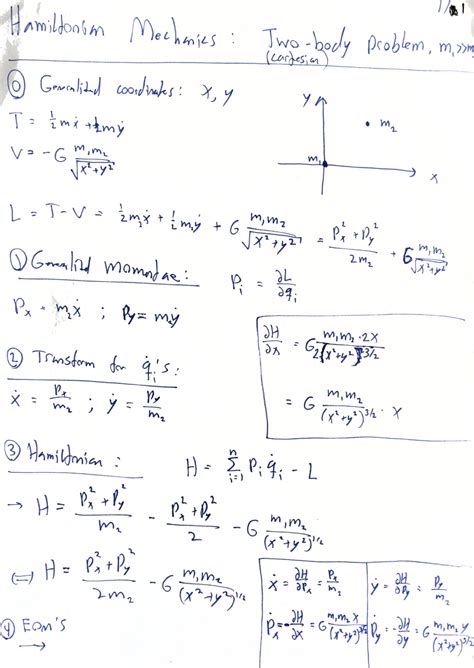 1/1
Hamiltonian Mechanics: Two-body problem, m₁>>m₂
(cartesian)
⓪ Generalized coordinates: x, y
T = ½mẋ + ½mẏ
V = -G m₁m₂/√(x²+y²)
y
m₂
m₁
x
L = T-V = ½m₂ẋ + ½m₂ẏ + G m₁m₂/√(x²+y²) = (Px²+Py²)/2m₂ + G m₁m₂/√(x²+y²)
① Generalized momentae: Pᵢ = ∂L/∂q̇ᵢ
Px = m₂ẋ ; Py = m₂ẏ
∂H/∂x = G m₁m₂·2x/2(x²+y²)^3/2
= G m₁m₂/(x²+y²)^3/2 · x
② Transform for q̇ᵢ's:
ẋ = Px/m₂ ; ẏ = Py/m₂
③ Hamiltonian: H = Σᵢ₌₁ⁿ Pᵢ q̇ᵢ - L
→ H = (Px²+Py²)/m₂ - (Px²+Py²)/2 - G m₁m₂/(x²+y²)^1/2
⇔ H = (Px²+Py²)/2m₂ - G m₁m₂/(x²+y²)^1/2
④ EOM'S
→
ẋ = ∂H/∂Px = Px/m₂
ẏ = ∂H/∂Py = Py/m₂
Ṗx = -∂H/∂x = G m₁m₂x/(x²+y²)^3/2
Ṗy = -∂H/∂y = G m₁m₂y/(x²+y²)^3/2